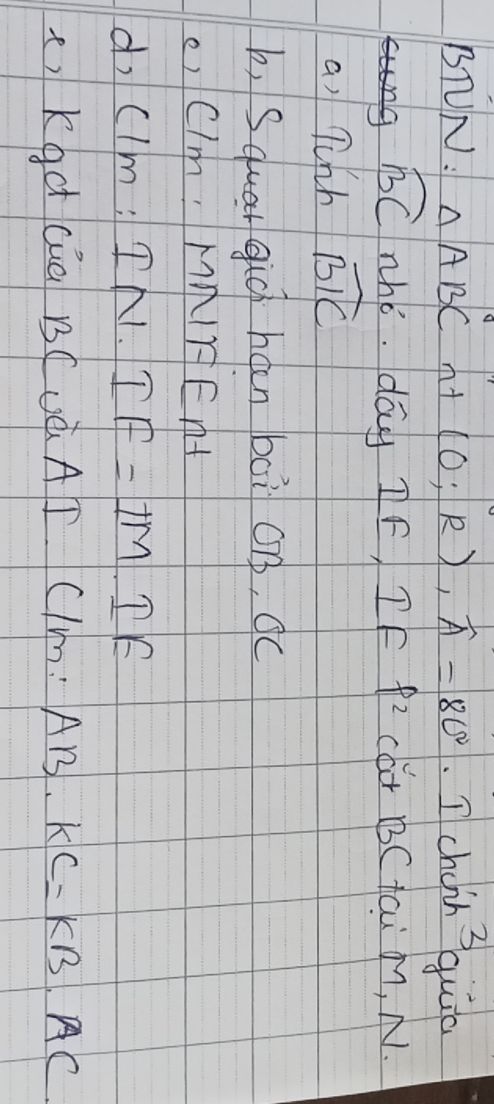 BTVN: Δ ABC nt (O; R), Â = 80°. I chính ³ giữa
cung BC nhỏ. dây IE, IF l² cắt BC tại M, N.
a, Tính BIC
b, S quạt giới hạn bởi OB, OC
c, C/m: MNFE nt
d, C/m: IN. IF = IM. IE
e, K gđ của BC và AI. C/m: AB. KC = KB. AC